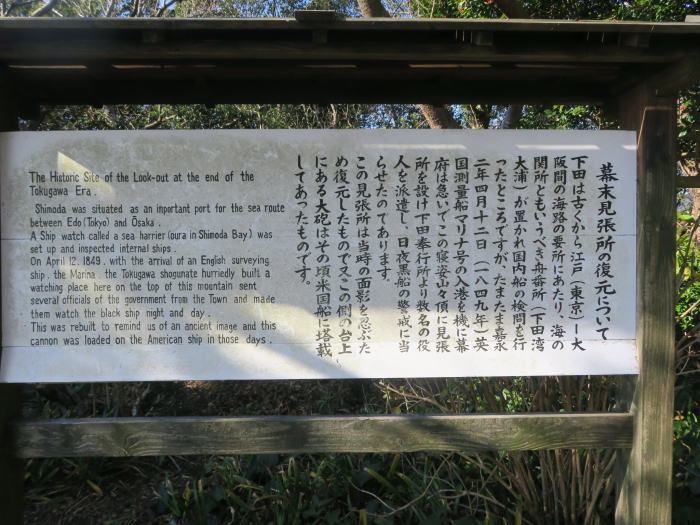 The Historic Site of the Look-out at the end of the
Tokugawa Era.
Shimoda was situated as an important port for the sea route
between Edo (Tokyo) and Osaka.
A Ship watch called a sea harrier (oura in Shimoda Bay) was
set up and inspected internal ships.
On April 12. 1849. with the arrival of an English surveying
ship. the Marina. the Tokugawa shogunate hurriedly built a
watching place here on the top of this mountain sent
several officials of the government from the Town and made
them watch the black ship night and day.
This was rebuilt to remind us of an ancient image and this
cannon was loaded on the American ship in those days.
幕末見張所の復元について
下田は古くから江戸（東京）ー大
阪間の海路の要所にあたり、海の
関所ともいうべき舟番所（下田湾
大浦）が置かれ国内船の検問を行
ったところですが、たまたま嘉永
二年四月十二日（一八四九年）英
国測量船マリナ号の入港を機に幕
府は急いでこの寝姿山々頂に見張
所を設け下田奉行所より数名の役
人を派遣し、日夜黒船の警戒に当
らせたのであります。
この見張所は当時の面影を忍ぶた
め復元したもので又この側の台上
にある大砲はその頃米国船に塔載
してあったものです。